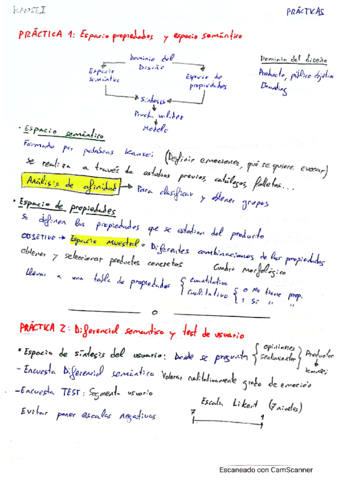 PRÁCTICAS
PRÁCTICA 1: Espacio propiedades y espacio semántico
Dominio del Diseño
Espacio semántico
Espacio de propiedades
Síntesis
Modelo
Dominio del diseño
Producto, público objetivo
Branding
• Espacio semántico
Formado por palabras kansei (Definir emociones, qué se quiere evocar)
se realiza a través de estudios previos, catálogos, folletos...
Análisis de afinidad → Para clasificar y obtener grupos
• Espacio de propiedades
Se definen las propiedades que se estudian del producto
OBJETIVO → Espacio muestral = Diferentes combinaciones de las propiedades
obtener y seleccionar productos concretos Cuadro morfológico
llevar a una tabla de propiedades { cuantitativa cualitativa { 0 No tiene prop. 1 Si " "
PRÁCTICA 2: Diferencial semántico y test de usuario
• Espacio de síntesis del usuario: Donde se pregunta { opiniones
- Encuesta Diferencial semántico Valoras cualitativamente grado de emoción
- Encuesta TEST: Segmenta usuario
Escala Likert (7 niveles)
Evitar poner escalas negativas
7 1
Escaneado con CamScanner